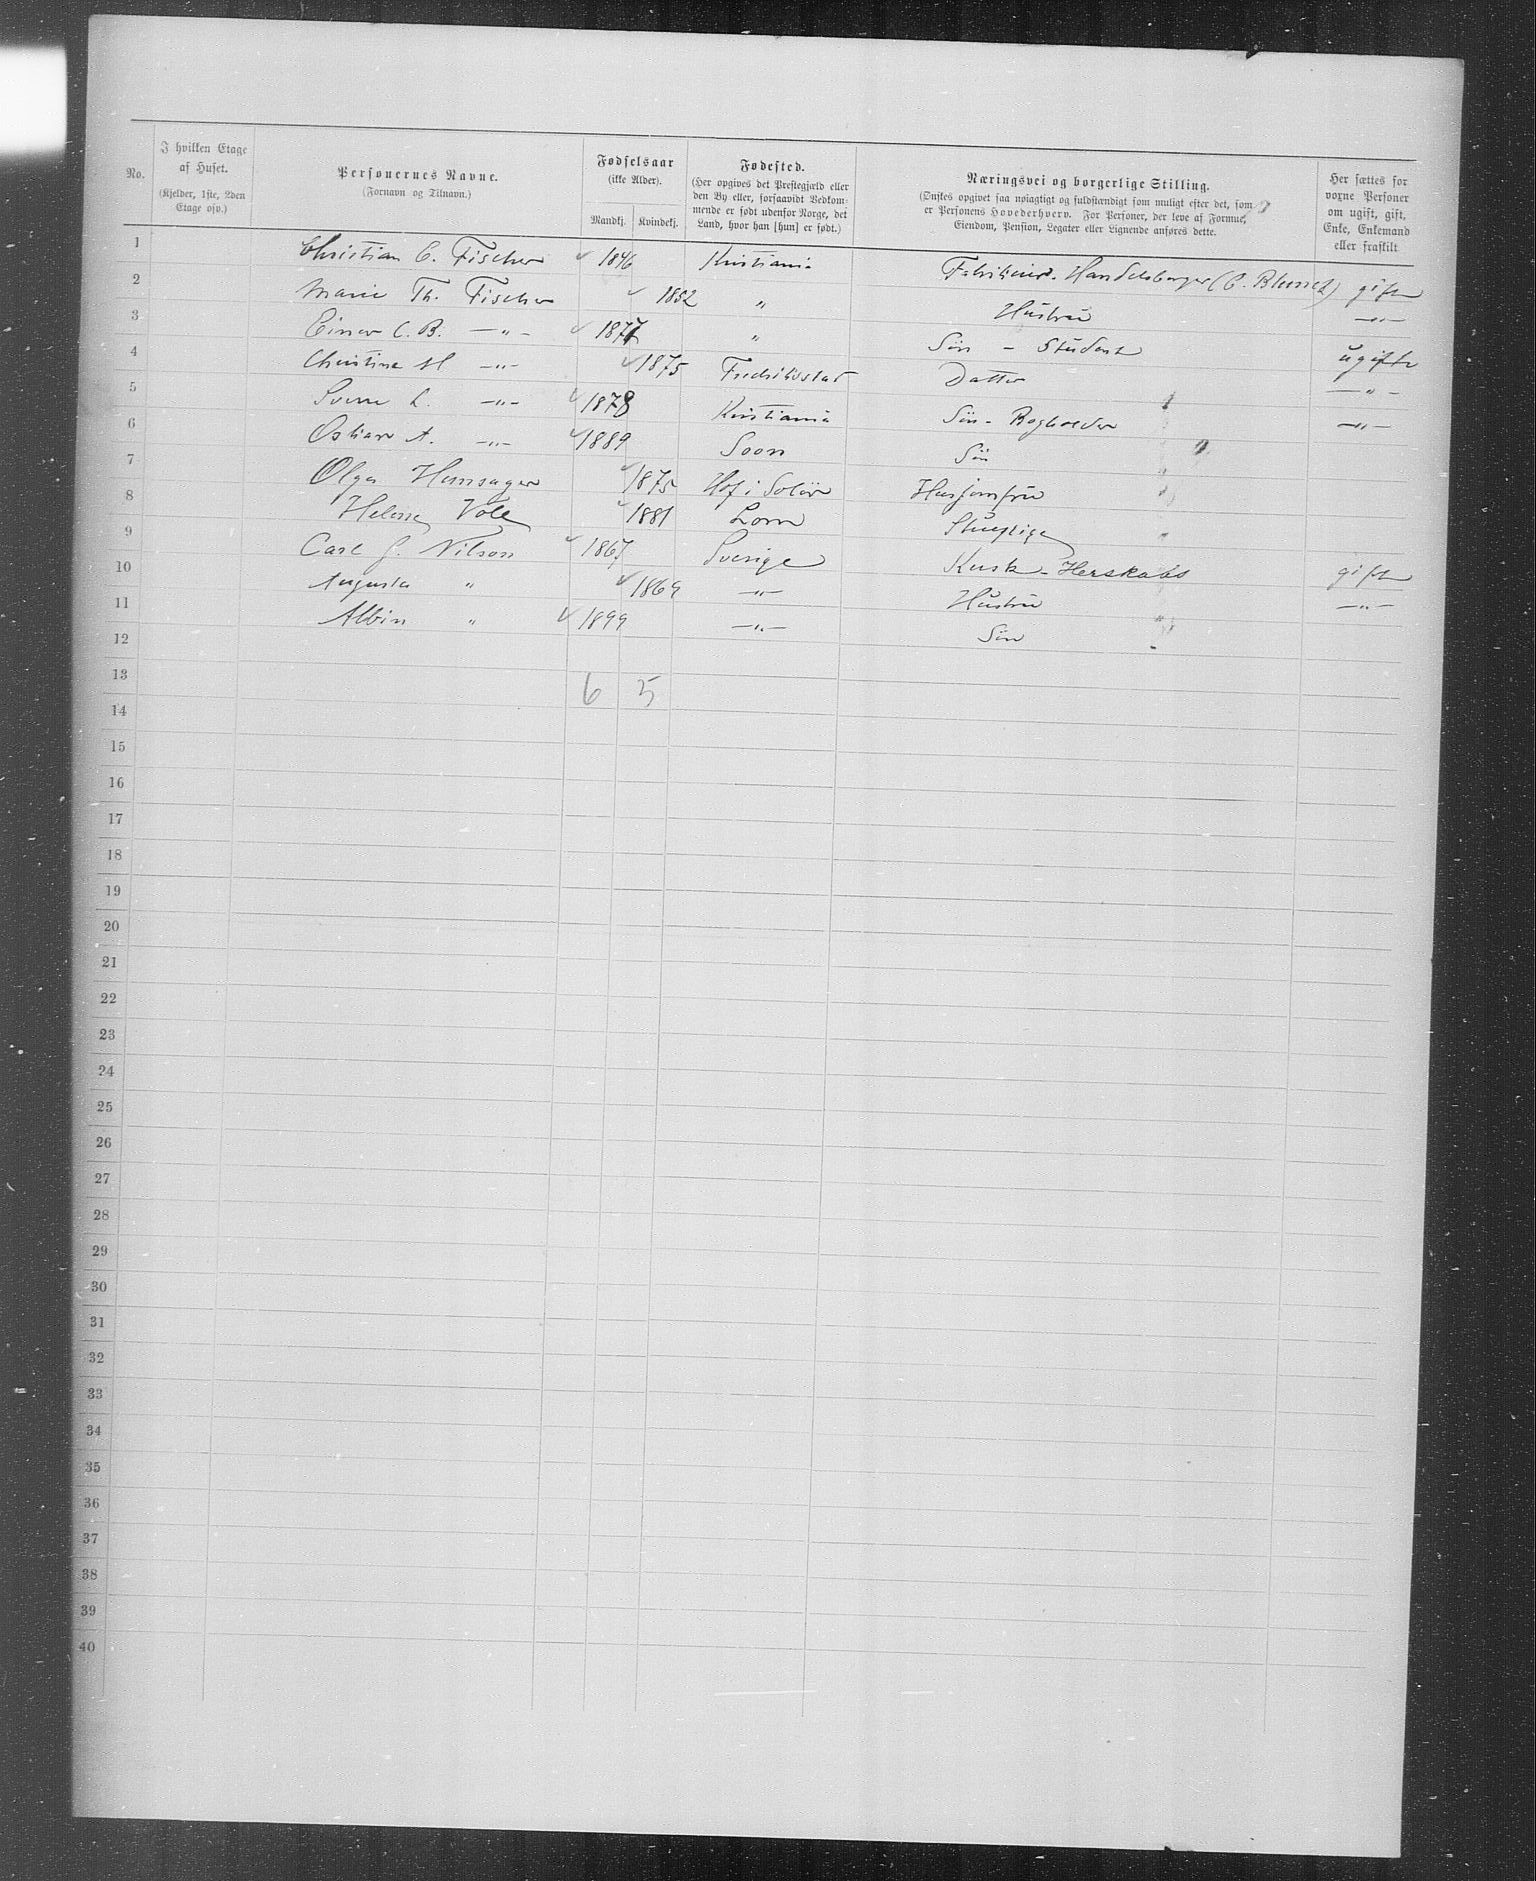 No. I hvilken Etage af Huset. (Kjelder, 1ste, 2den Etage osv.) Personernes Navne. (Fornavn og Tilnavn.) Fødselsaar (ikke Alder). Mandkj. Kvindekj. Fødested. (Her opgives det Præstegjæld eller den By eller, forsaavidt Vedkommende er født udenfor Norge, det Land, hvor han [hun] er født.) Næringsvei og borgerlige Stilling. (Ønskes opgivet saa nøiagtigt og fuldstændigt som muligt efter det, som er Personens Hovederhverv. For Personer, der leve af Formue, Eiendom, Pension, Legater eller Lignende anføres dette. Her sættes for voxne Personer om ugift, gift, Enke, Enkemand eller fraskilt
1 Christian C. Fischer 1846 Kristiania Fabrikeier. Handelsborger (C. ) gift
2 Marie Th. Fischer 1852 " Hustru —"—
3 Einar C. B. —"— 1877 " Søn - Student ugifte
4 Christine M —"— 1875 Fredrikstad Datter —"—
5 Sverre L. —"— 1878 Kristiania Søn - Bogholder —"—
6 Oskar A. —"— 1889 Soon Søn
7 Olga Hemsager 1875 Hof i Solør Husjomfru
8 Helene 1881 Lom Stuepige
9 Carl G. Nilson 1867 Sverige Kusk - Herskabs gift
10 Augusta " 1869 —"— Hustru —"—
11 Albin " 1899 —"— Søn
12
13 6 5
14
15
16
17
18
19
20
21
22
23
24
25
26
27
28
29
30
31
32
33
34
35
36
37
38
39
40